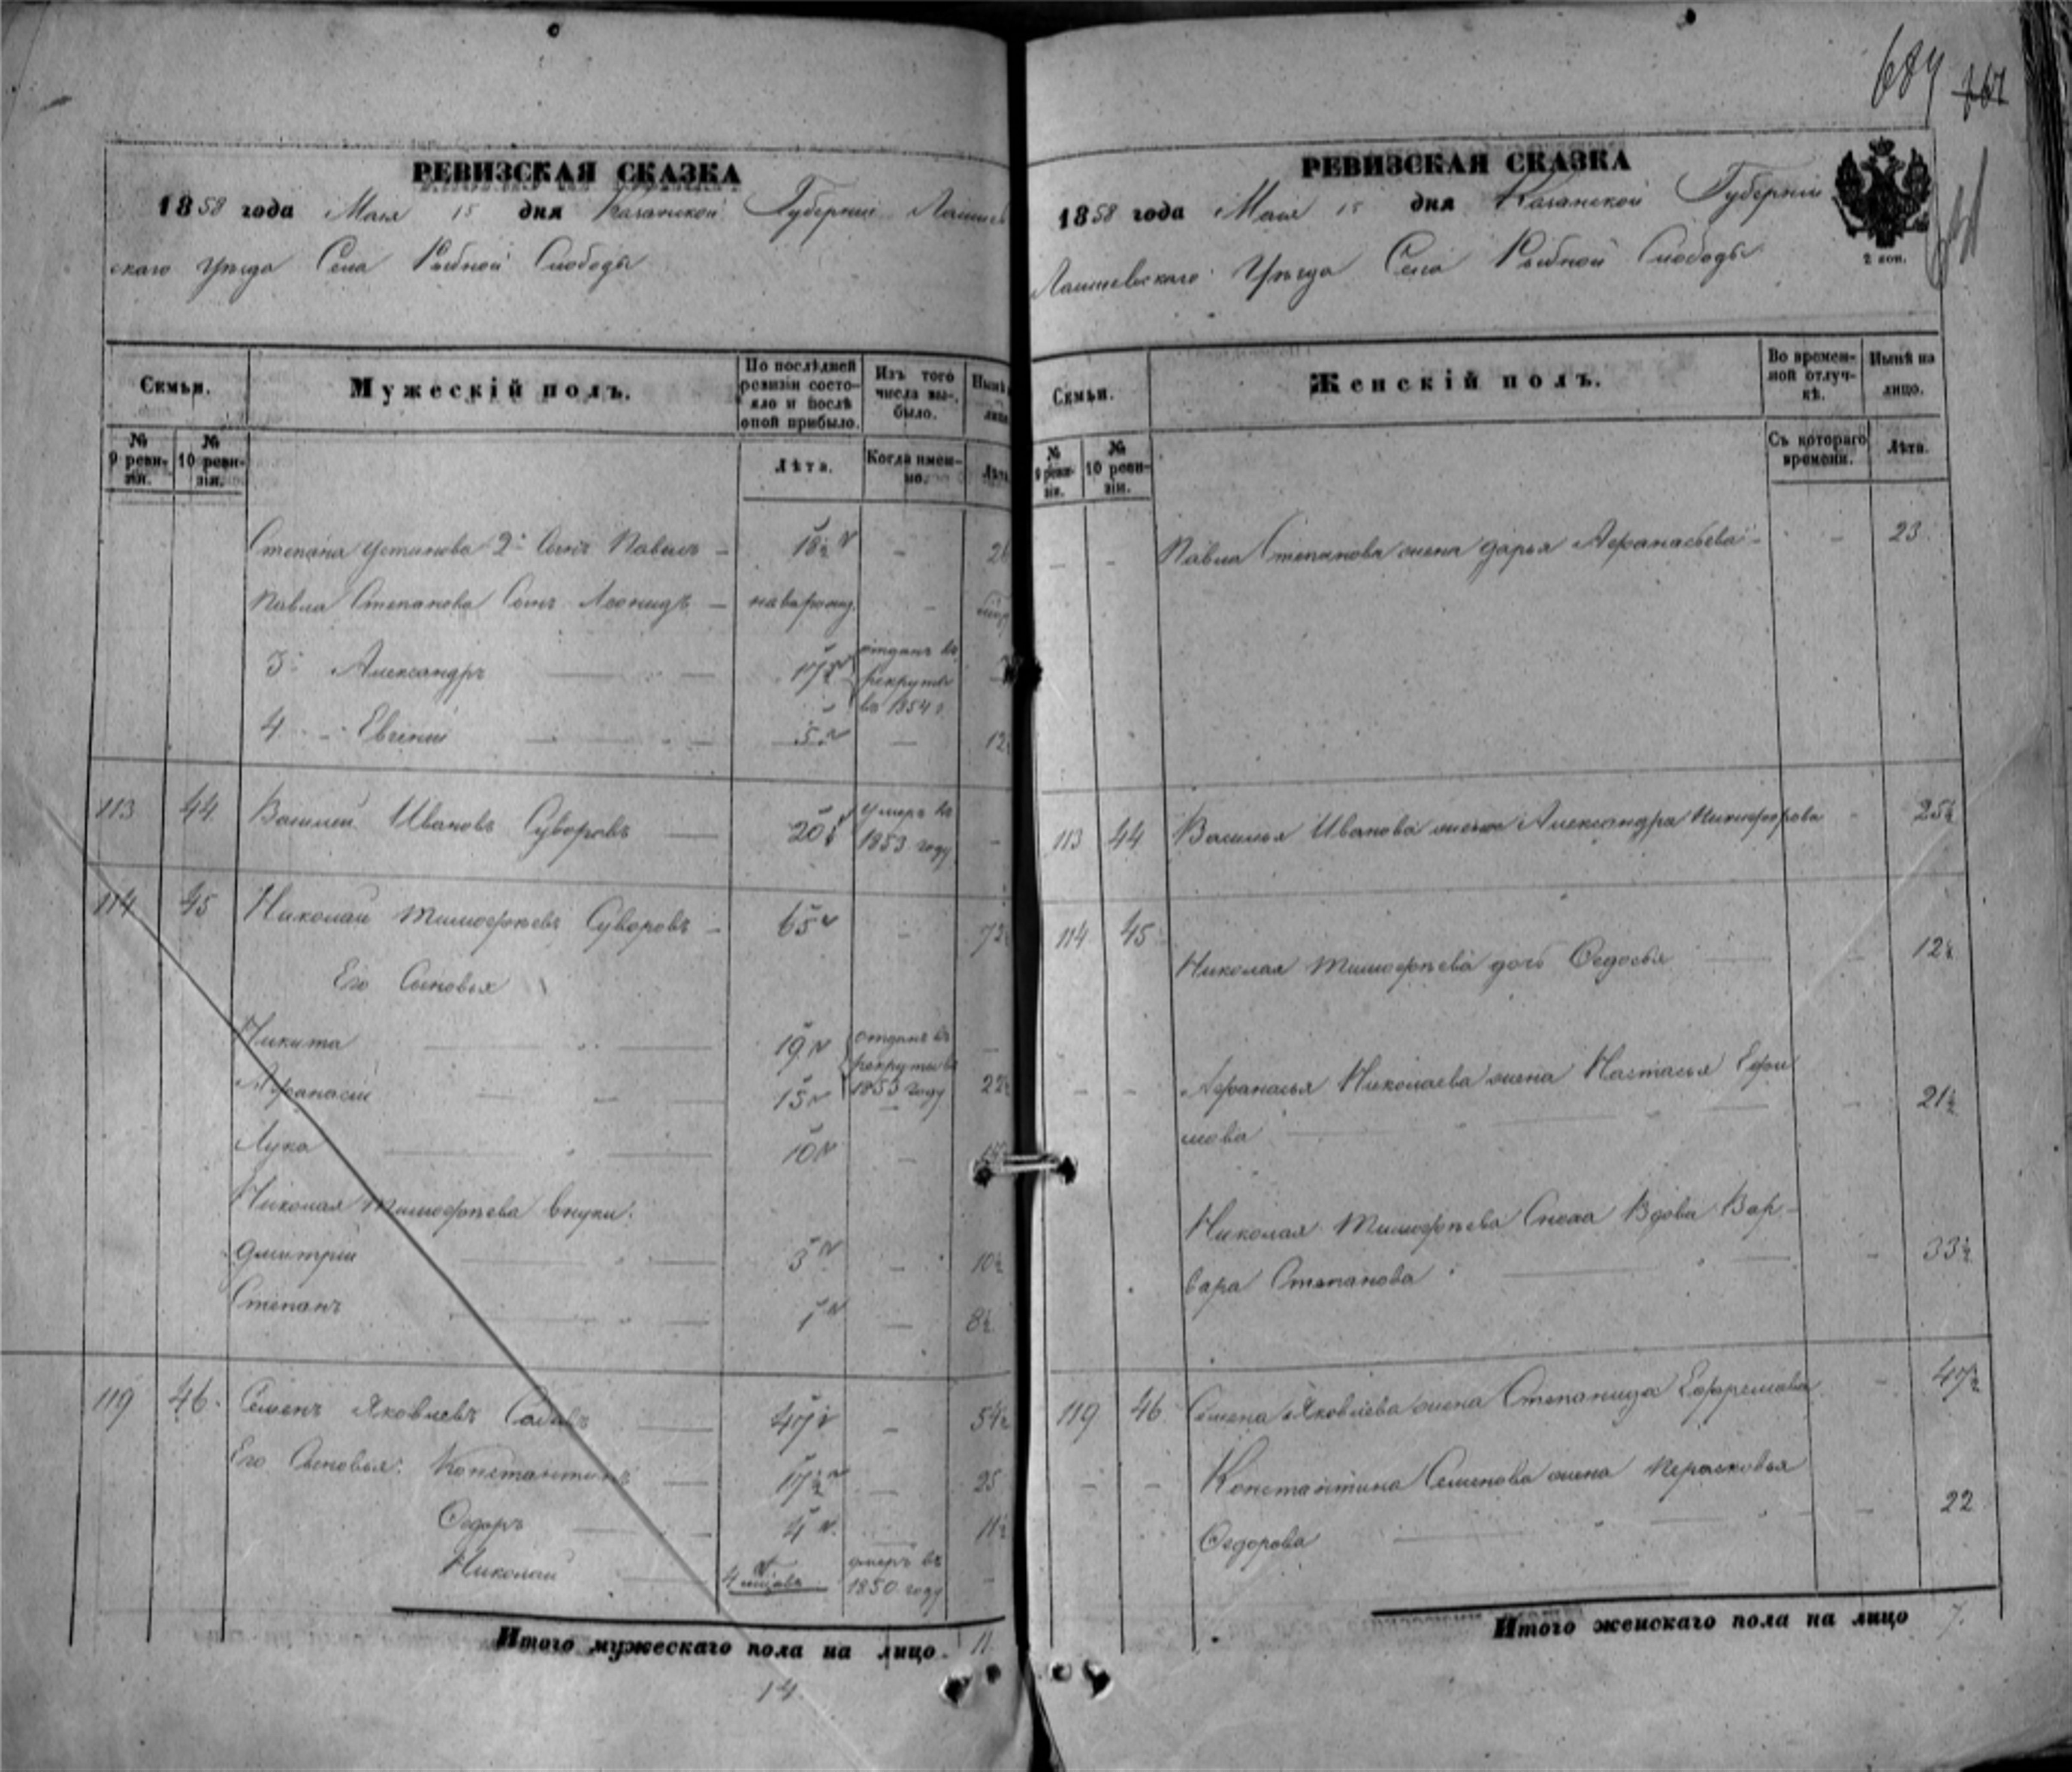 689 761
РЕВИЗСКАЯ СКАЗКА
1858 года Мая 15 дня Казанской Губернии Лаишев
скаго Уѣзда Села Рыбной Слободы
Семьи.
Мужескій полъ.
По послѣдней ревизіи состояло и послѣ оной прибыло.
Изъ того числа выбыло.
Нынѣ
лицо
№ 9 ревизіи.
№ 10 ревизіи.
Лѣта.
Когда именно.
Лѣта
Степана Устинова 2й Сынъ Павелъ 18½ - 26
Павла Степанова Сынъ Леонидъ новорожд. -
3й Александръ 17½ отданъ въ рекруты въ 1854 г.
4 - Евгеній 5 - 12½
113 44 Василий Ивановъ Суворовъ 20½ умеръ въ 1853 году -
114 45 Николай Тимофѣевъ Суворовъ 65 - 72½
Его Сыновья
Никита 19 отданъ въ рекруты въ 1853 году -
Афанасій 15 - 22½
Лука 10 -
Николая Тимофѣева внуки:
Дмитрій 3 - 10½
Степанъ 1 - 8½
119 46. Семенъ Яковлевъ 47 - 54½
Его Сыновья: Константинъ 17½ - 25
Ѳедоръ 4 - 11½
Николай 4 мѣсяцъ умеръ въ 1850 году -
Итого мужескаго пола на лицо 11
14
РЕВИЗСКАЯ СКАЗКА
1858 года Мая 15 дня Казанской Губерніи
Лаишевскаго Уѣзда Села Рыбной Слободы
2 коп.
Семьи.
Женскій полъ.
Во временной отлучкѣ.
Нынѣ на лицо.
№ 9 ревизіи.
№ 10 ревизіи.
Съ котораго времени.
Лѣта.
- - Павла Степанова жена Дарья Афанасьева - 23
113 44 Василья Иванова жена Александра Никифорова - 25½
114 45 Николая Тимофѣева дочь Ѳедосья - 12½
- - Афанасья Николаева жена Настасья Ефи
мова - 21½
Николая Тимофѣева Сноха Вдова Вар-
вара Степанова - 33½
119 46 Семена Яковлева жена Степанида Ефремова - 47½
- - Константина Семенова жена Перасковья
Ѳедорова - 22
Итого женскаго пола на лицо 7.